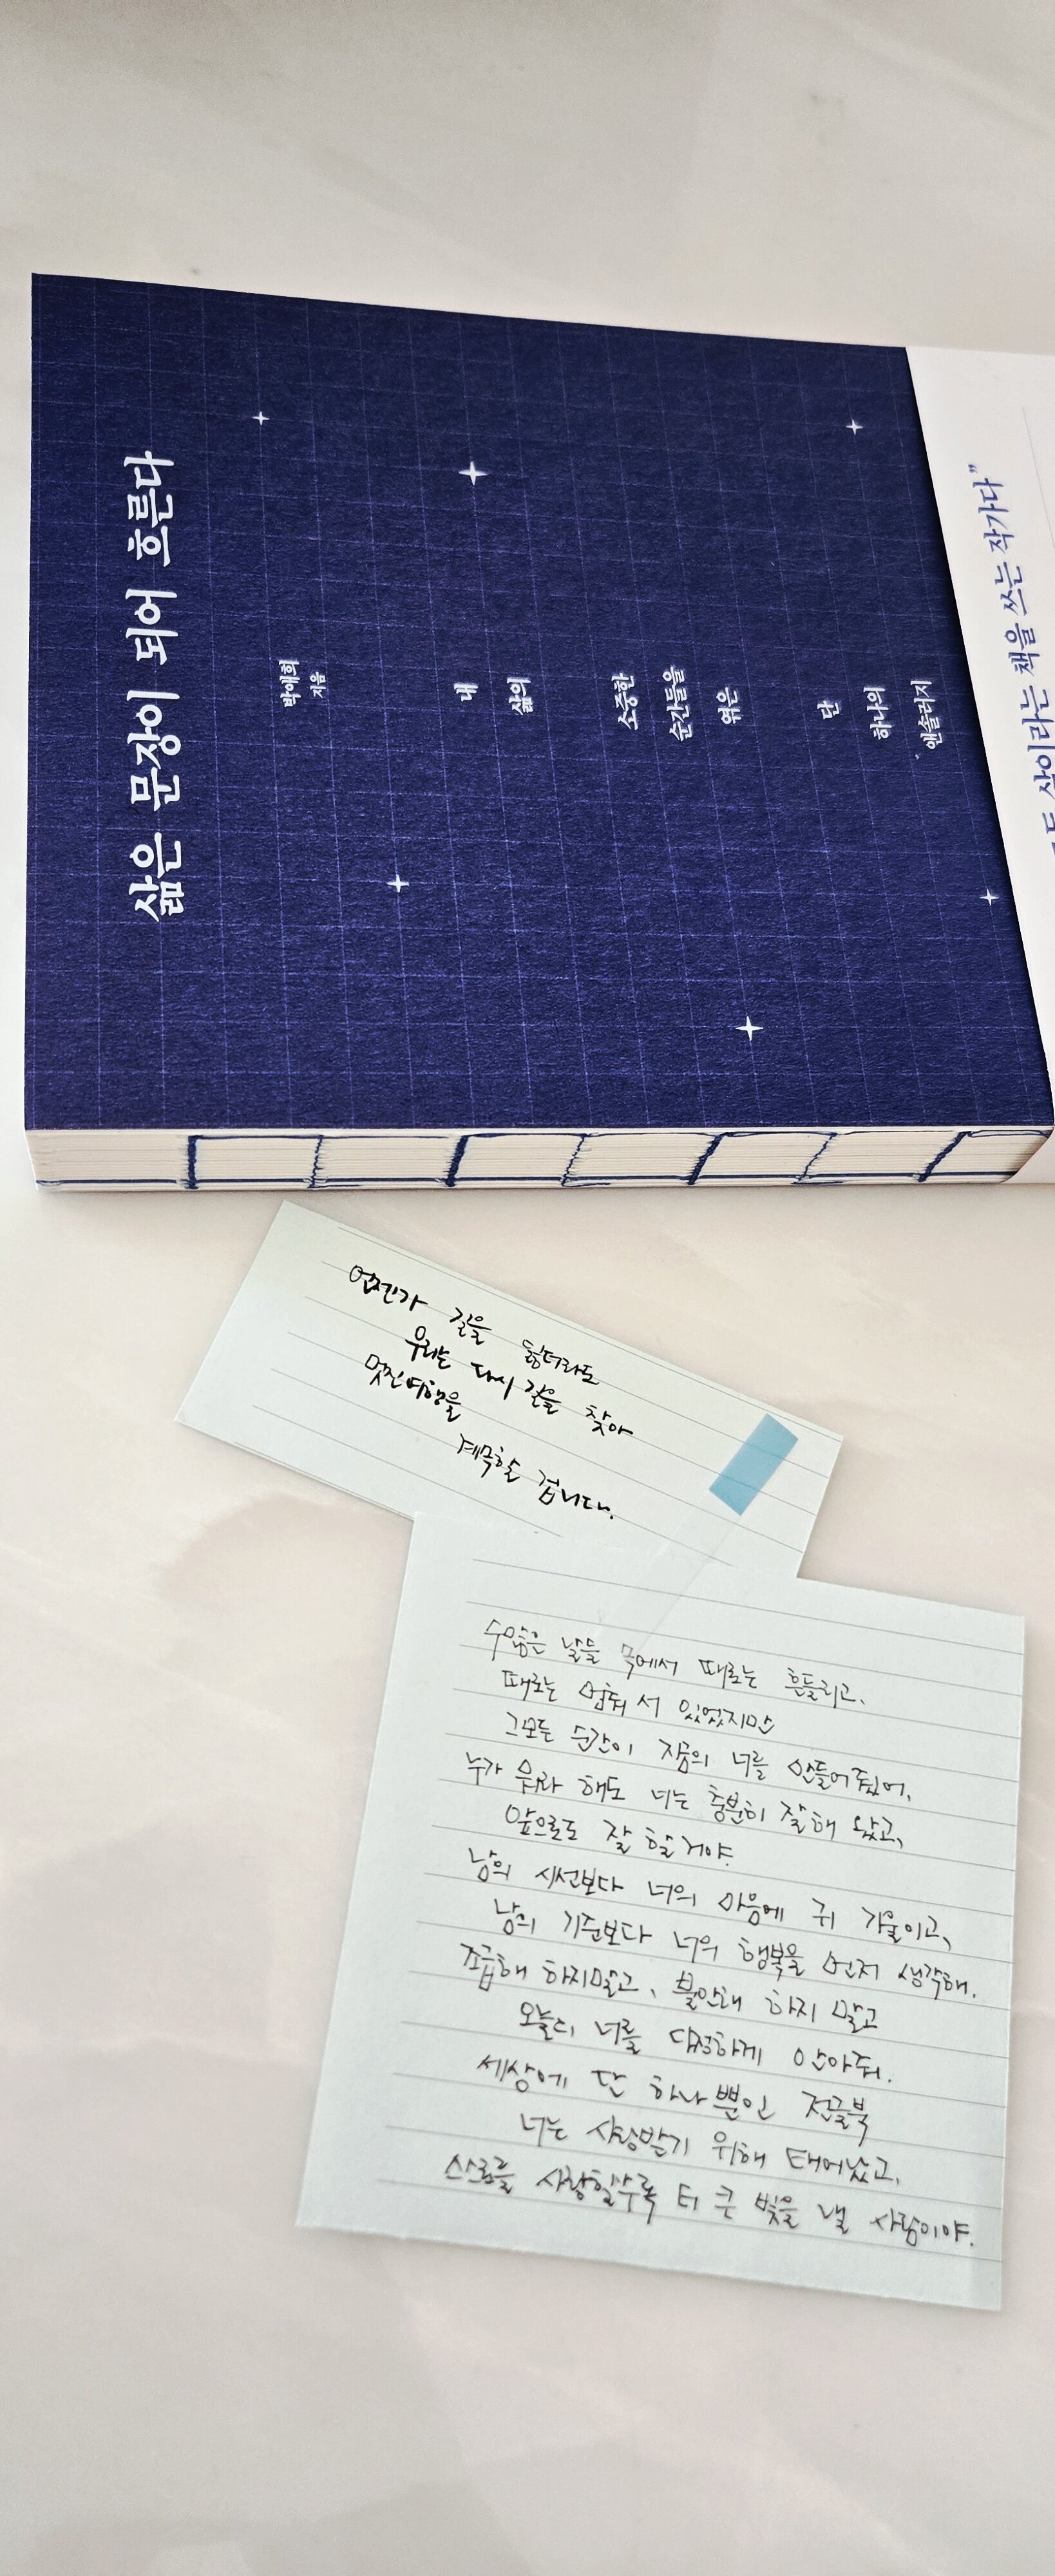 삶은 문장이 되어 흐른다
박애희
지음
내
삶의
소중한
순간들을
엮은
단
하나의
앤솔러지
삶이라는 책을 쓰는 작가다”
언젠가 길을 잃더라도
우리는 다시 길을 찾아
멋진여행을
계획할 겁니다.
수많은 날들 속에서 때로는 흔들리고,
때로는 멈춰 서 있었지만
그모든 순간이 지금의 너를 만들어주었어,
누가 뭐라 해도 너는 충분히 잘해 왔고,
앞으로도 잘 할거야.
남의 시선보다 너의 마음에 귀 기울이고,
남의 기준보다 너의 행복을 먼저 생각해.
조급해 하지말고, 불안해 하지 말고
오늘도 너를 다정하게 안아줘.
세상에 단 하나뿐인
너는 사랑받기 위해 태어났고,
스스로를 사랑할수록 더 큰 빛을 낼 사람이야.